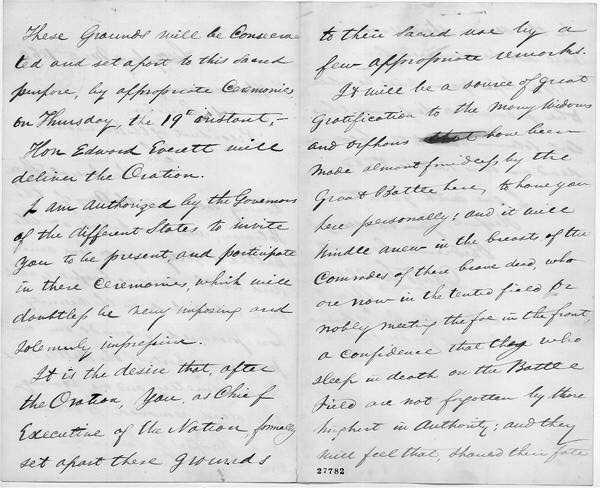 These Grounds will be Consecra
ted and set apart to this Sacred
purpose, by appropriate Ceremonies,
on Thursday, the 19th instant,-
Hon Edward Everett will
deliver the Oration.
I am authorized by the Governors
of the different States to invite
you to be present, and participate
in these Ceremonies, which will
doubtless be very imposing and
solemnly impressive.
It is the desire that, after
the Oration, You, as Chief
Executive of the Nation, formally
set apart these Grounds
to their Sacred use by a
few appropriate remarks.
It will be a source of great
gratification to the many widows
and orphans that have been
made almost friendless by the
Great Battle here, to have you
here personally; and it will
kindle anew in the breasts of the
Comrades of these brave dead, who
are now in the tented field or
nobly meeting the foe in the front,
a confidence that they who
sleep in death on the Battle
Field are not forgotten by those
highest in Authority; and they
will feel that, should their fate
27782